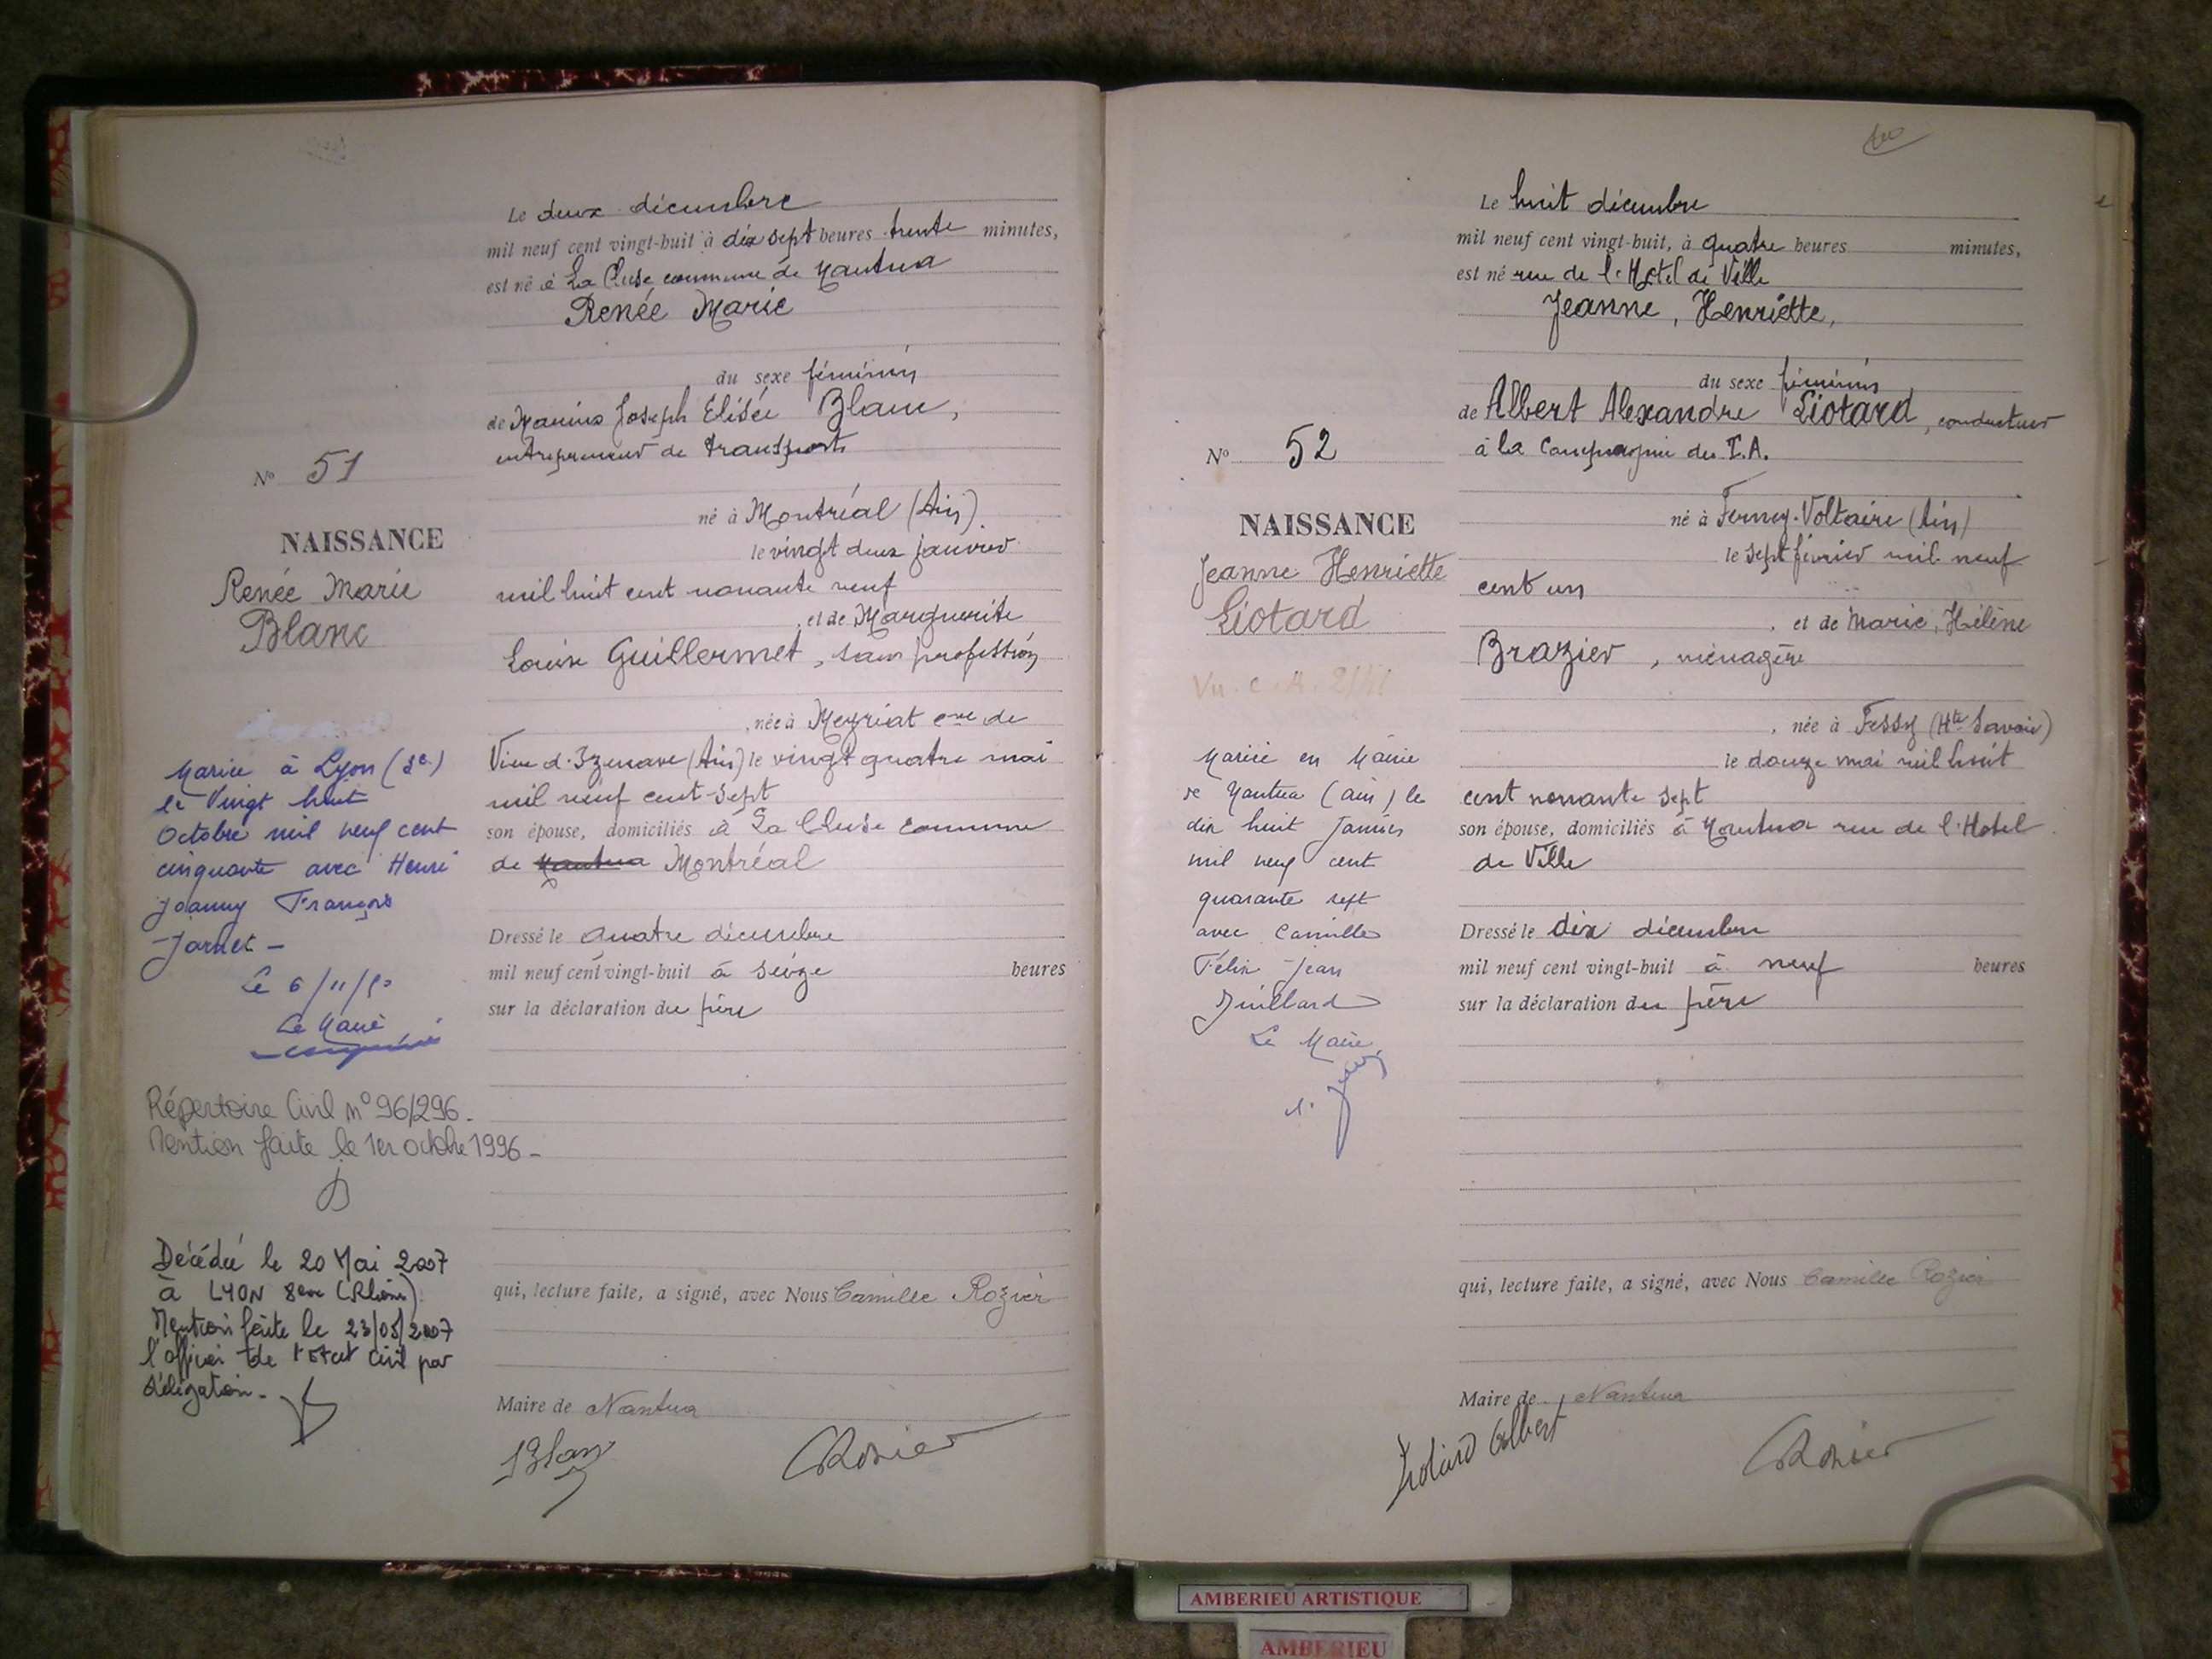 Le deux décembre
mil neuf cent vingt-huit à dix sept heures trente minutes,
est né à La Cluse commune de Nantua
Renée Marie
du sexe féminin
de Marius Joseph Elisée Blanc,
entrepreneur de transports
No 51
né à Montréal (Ain)
le vingt deux janvier
NAISSANCE
Renée Marie
Blanc
mil huit cent nonante neuf
, et de Marguerite
Louise Guillermet, sans profession
, née à Meyriat cne de
Vieu d'Izenave (Ain) le vingt quatre mai
mil neuf cent sept
son épouse, domiciliés à La Cluse commune
de Nantua Montréal
Dressé le quatre décembre
mil neuf cent vingt-huit à seize heures
sur la déclaration du père
Mariée à Lyon
le Vingt huit
Octobre mil neuf cent
cinquante avec Henri
Joanny François
Jarnet -
Le 6/11/50
Le Maire
Répertoire Civil n° 96/296.
Mention faite le 1er octobre 1996 -
Décédée le 20 Mai 2007
à LYON 8ème (Rhône)
Mention faite le 23/05/2007
l'officier de l'Etat civil par
délégation -
qui, lecture faite, a signé, avec Nous Camille Rozier
Maire de Nantua
Blanc
CRozier
Le huit décembre
mil neuf cent vingt-huit, à quatre heures minutes,
est né rue de l'Hotel de Ville
Jeanne, Henriette,
du sexe féminin
de Albert Alexandre Liotard, conducteur
à la Compagnie du T.A.
No 52
né à Ferney-Voltaire (Ain)
le sept février mil neuf
NAISSANCE
Jeanne Henriette
Liotard
cent un
, et de Marie, Hélène
Brazier, ménagère
, née à Fessy (Hte Savoie)
le douze mai mil huit
cent nonante sept
son épouse, domiciliés à Nantua rue de l'Hotel
de Ville
Dressé le dix décembre
mil neuf cent vingt-huit à neuf heures
sur la déclaration du père
Mariée en Mairie
de Nantua (ain) le
dix huit Janvier
mil neuf cent
quarante sept
avec Camille
Félix Jean
Juillard
Le Maire,
qui, lecture faite, a signé, avec Nous Camille Rozier
Maire de Nantua
Liotard Albert
CRozier
AMBERIEU ARTISTIQUE
AMBERIEU